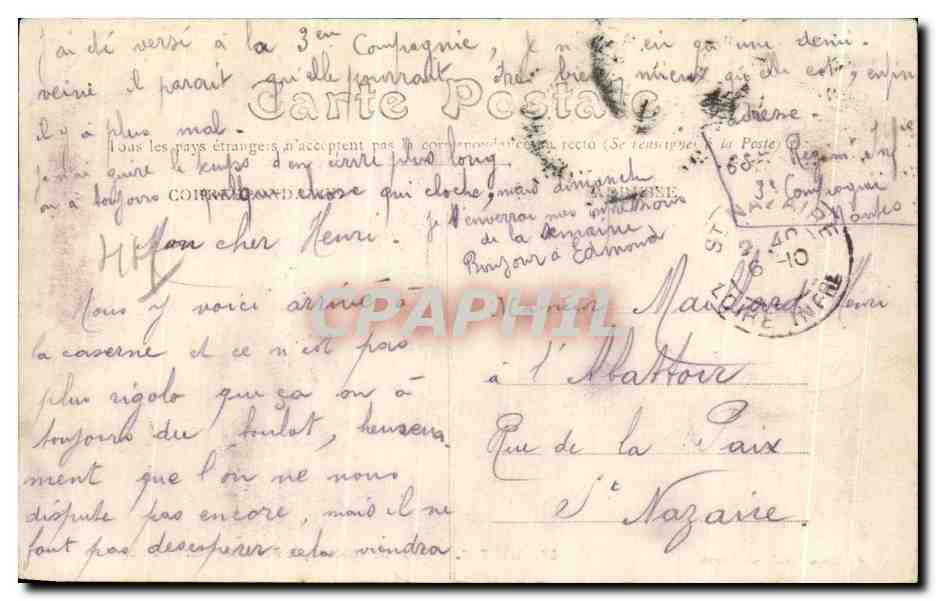 J'ai été versé à la 3em Compagnie, en ça une demi-
veine il parait qu'elle pourrait être bien mieux qu'elle est, enfin
il y a plus mal.
Carte Postale
Tous les pays étrangers n'acceptent pas la correspondance au recto (Se renseigner à la Poste)
Je n'ai guère le temps d'en écrire plus long
on a toujours quelque chose qui cloche, mais dimanche
je t'enverrai mes
de la semaine
Bonjour à Edmond
CORRESPONDANCE
ADRESSE
adresse.
Regim Inf
3e Compagnie
Nantes
Mon cher Henri.
Nous y voici arrivé à
la caserne et ce n'est pas
plus rigolo que ça on à
toujours du boulot, heureuse-
ment que l'on ne nous
dispute pas encore, mais il ne
faut pas desesperer cela viendra
ST NAZAIRE
6 -10
LOIRE INFRE
Henri
à l'Abattoir
Rue de la Paix
St Nazaire.
CPAPHIL